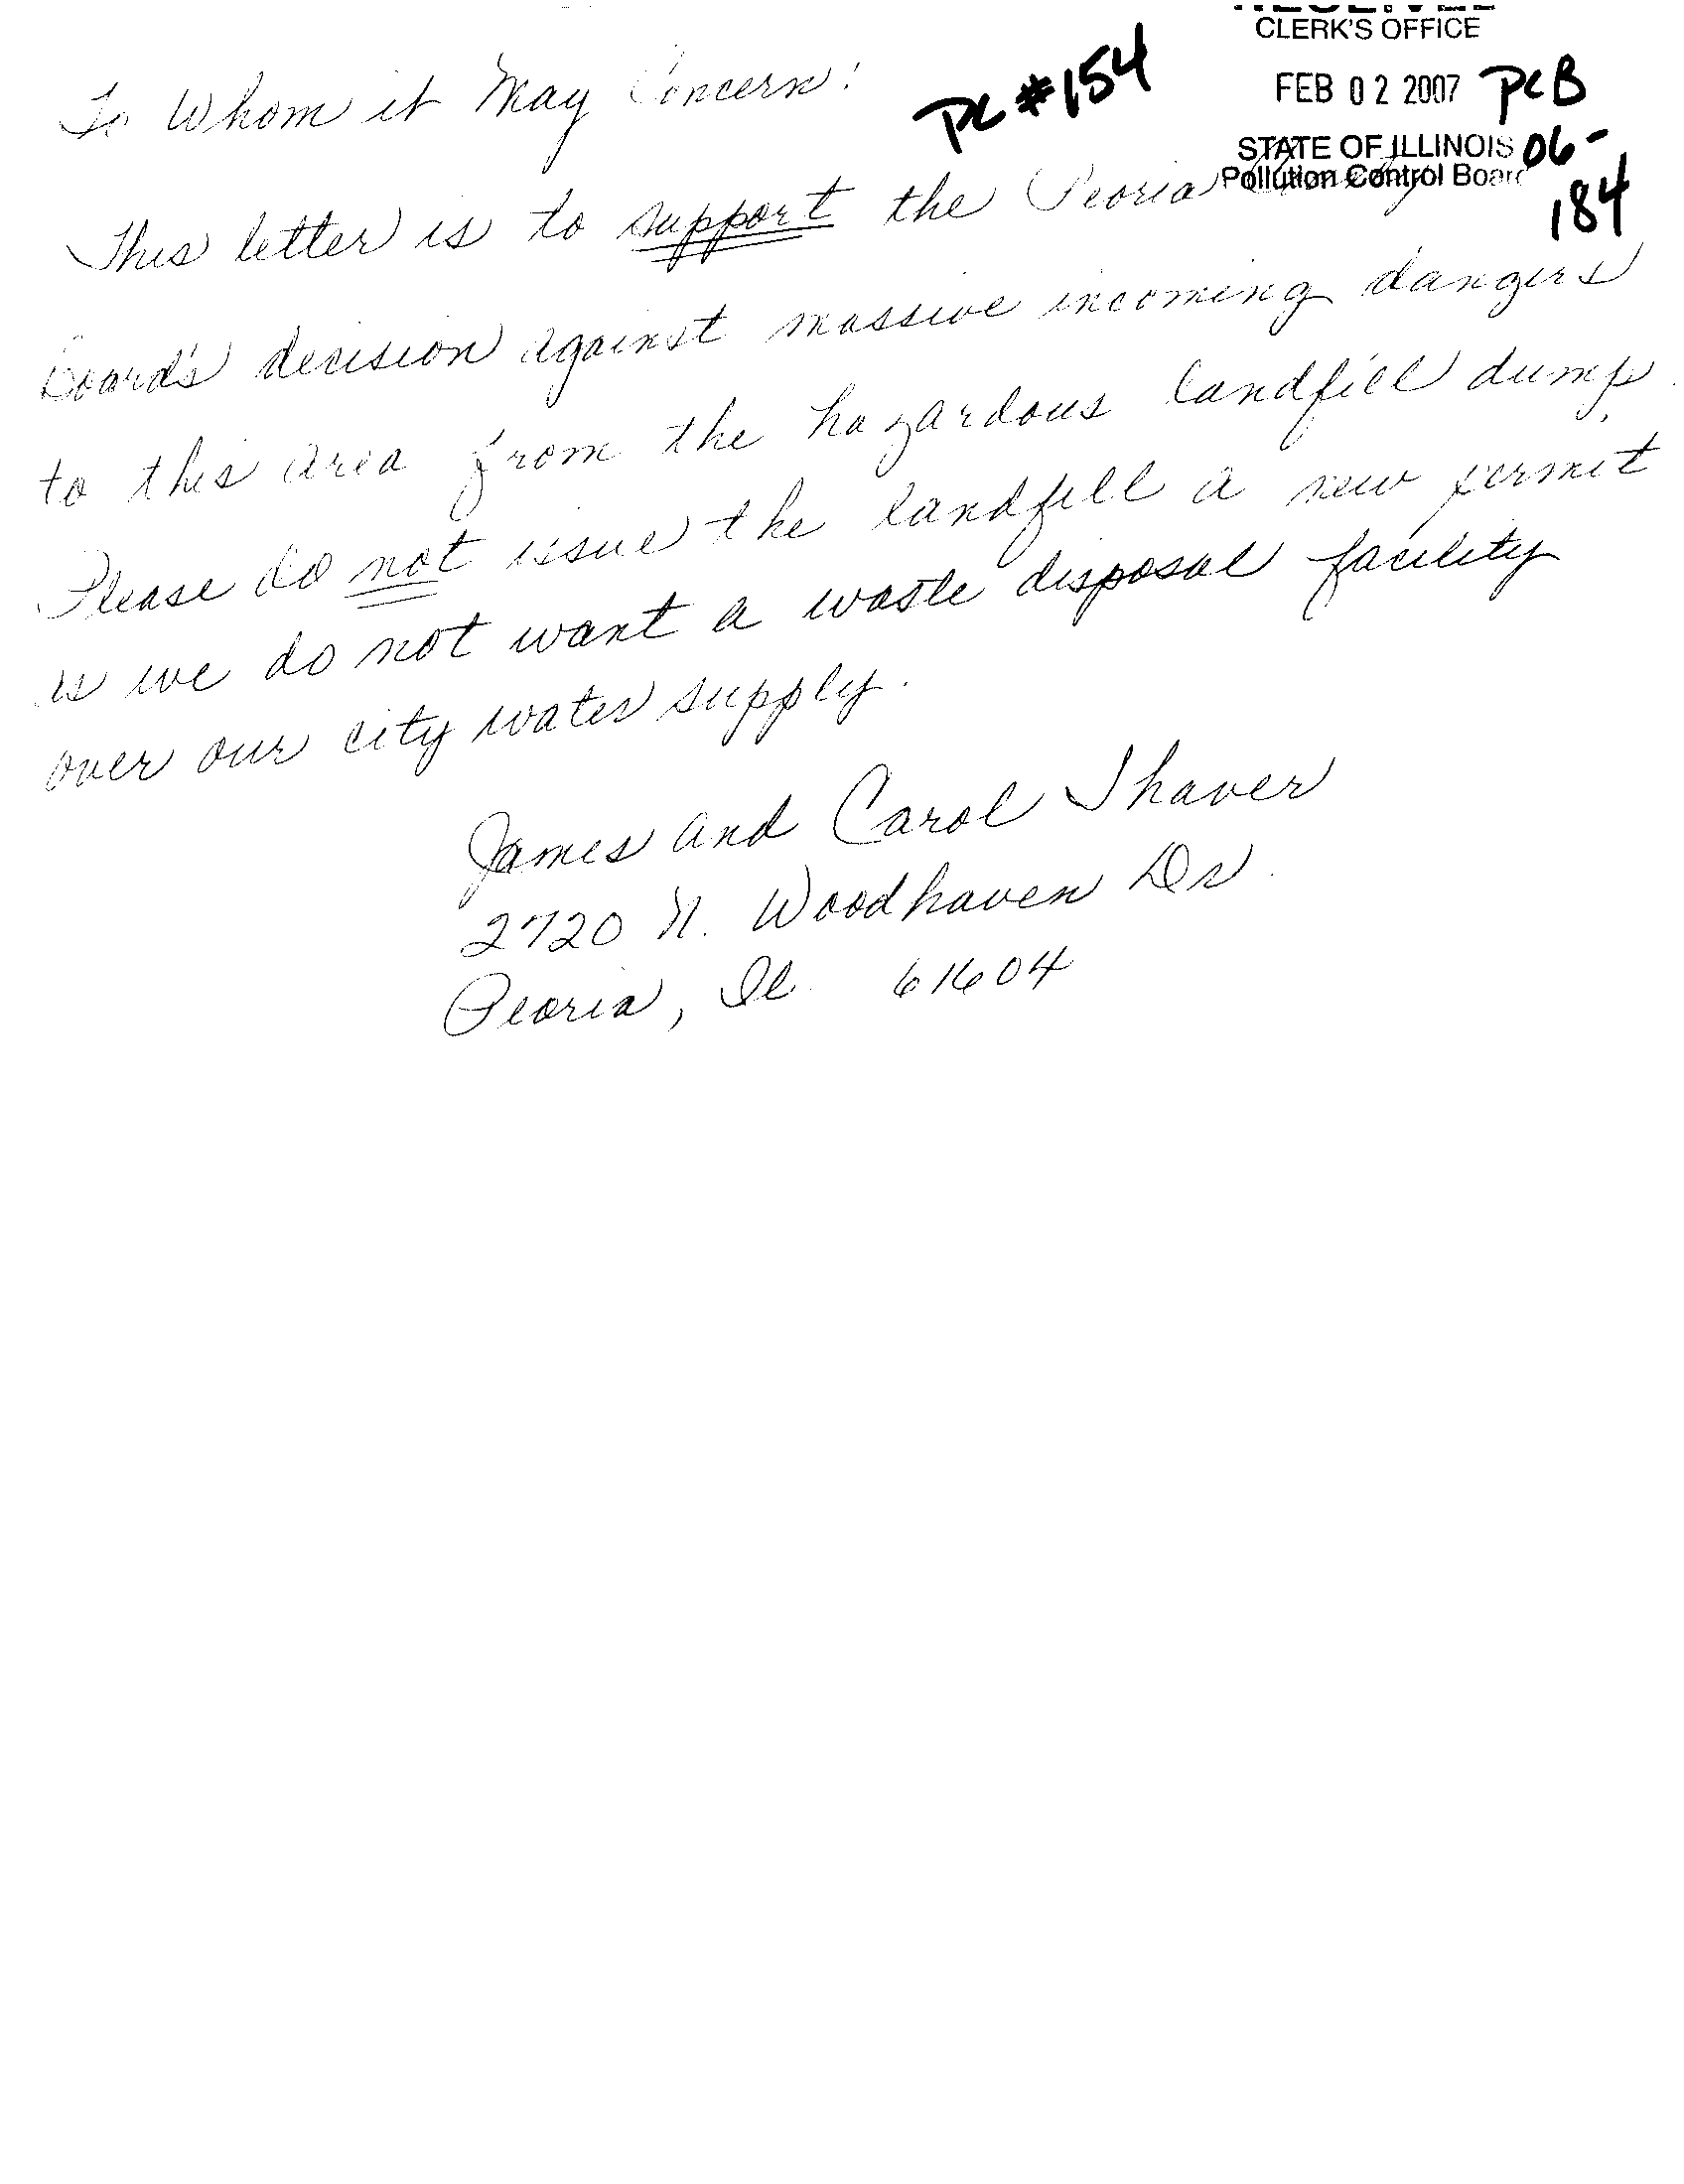 CLERK'S OFFICE
FEB 02 2007
STATE OF ILLINOIS
Pollution Control Board
PC #154
PCB
06-
184
To Whom it May Concern:
This letter is to support the Peoria County
Board's decision against massive incoming dangers
to this area from the hazardous landfill dump.
Please do not issue the landfill a new permit
as we do not want a waste disposal facility
over our city water supply.
James and Carol Thaver
2720 N. Woodhaven Dr.
Peoria, Il. 61604